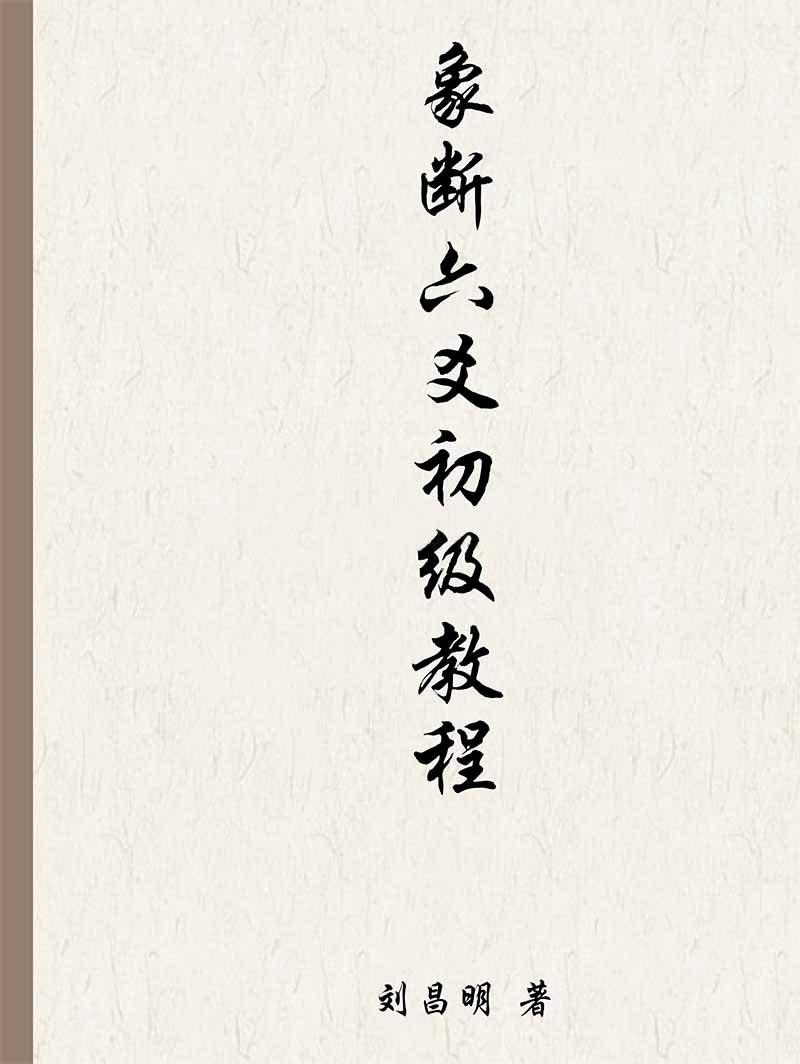 象断六爻初级教程
刘昌明 著